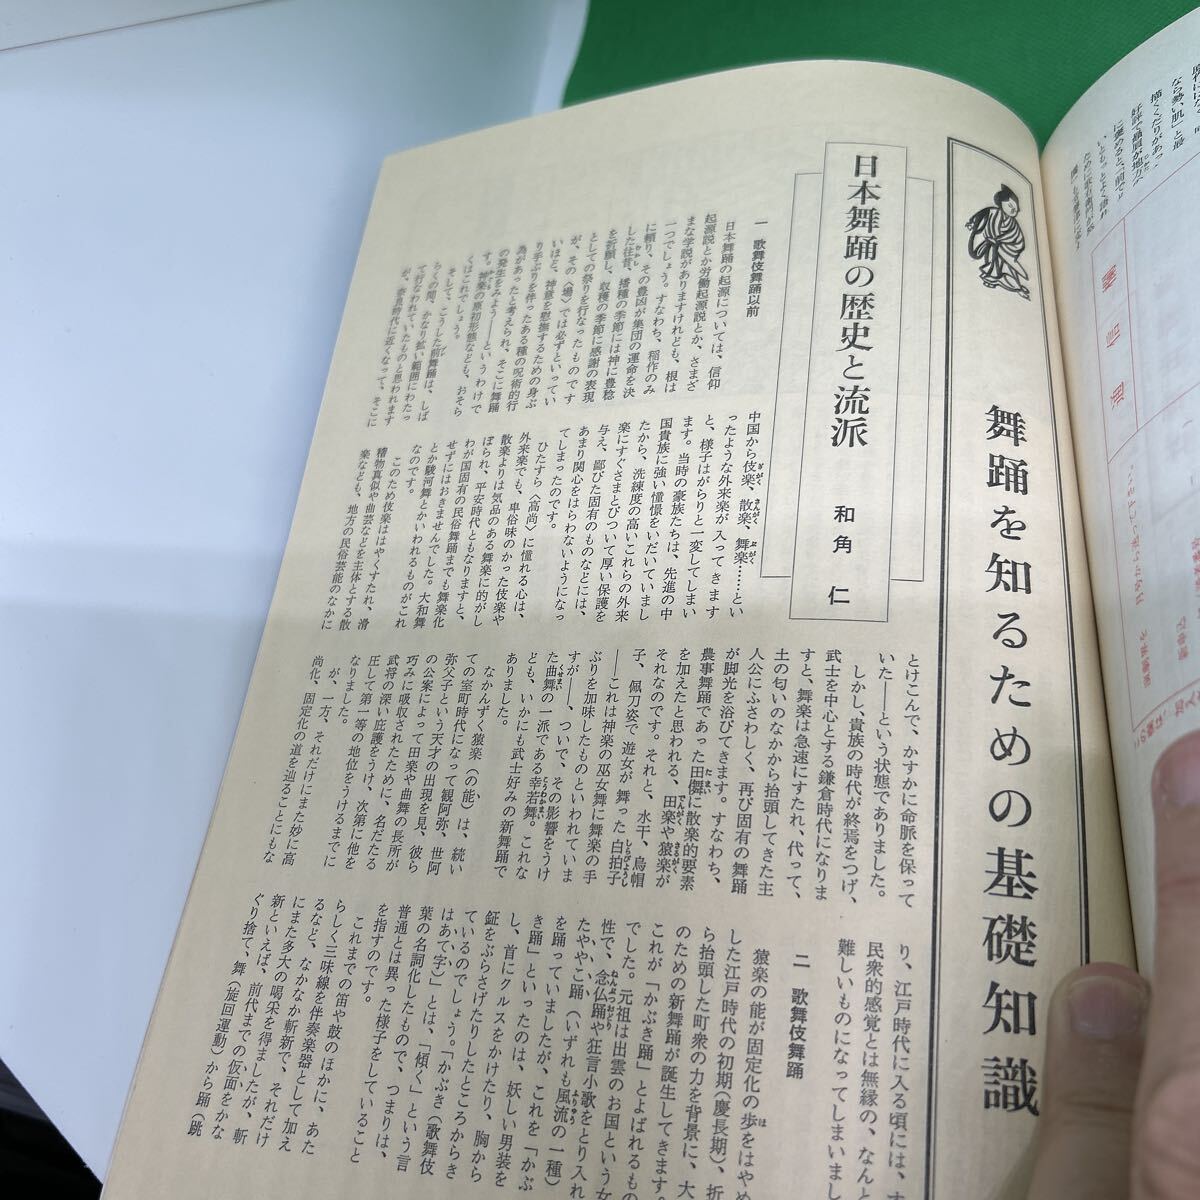 舞踊を知るための基礎知識
日本舞踊の歴史と流派
和角 仁
一 歌舞伎舞踊以前
日本舞踊の起源については、信仰
起源説とか労働起源説とか、さまざ
まな学説がありますけれども、根は
一つでしょう。すなわち、稲作のみ
に頼り、その豊凶が集団の運命を決
した往昔、播種の季節には神に豊稔
を祈願し、収穫の季節に感謝の表現
としての祭りを行なったものです
が、その〈場〉では必ずといってい
いほど、神意を慰撫するための身ぶ
り手ぶりを伴ったある種の呪術的行
為があったと考えられ、そこに舞踊
の発生をみよう——というわけで
す。神楽の原初形態なども、おそら
くはこれでしょう。
そして、こうした前舞踊は、しば
らくの間、かなり拡い範囲にわたっ
て行なわれていたものと思われます
が、奈良時代に近くなって、そこに
中国から伎楽、散楽、舞楽……とい
ったような外来楽が入ってきます
と、様子はがらりと一変してしまい
ます。当時の豪族たちは、先進の中
国貴族に強い憧憬をいだいていまし
たから、洗練度の高いこれらの外来
楽にすぐさまとびついて厚い保護を
与え、鄙びた固有のものなどには、
あまり関心をはらわないようになっ
てしまったのです。
ひたすら〈高尚〉に憧れる心は、
外来楽でも、卑俗味のかった伎楽や
散楽よりは気品のある舞楽に的がし
ぼられ、平安時代ともなりますと、
わが国固有の民俗舞踊までも舞楽化
せずにはおきませんでした。大和舞
とか駿河舞とかいわれるものがこれ
なのです。
このため伎楽ははやくすたれ、滑
稽物真似や曲芸などを主体とする散
楽なども、地方の民俗芸能のなかに
とけこんで、かすかに命脈を保って
いた——という状態でありました。
しかし、貴族の時代が終焉をつげ、
武士を中心とする鎌倉時代になりま
すと、舞楽は急速にすたれ、代って、
土の匂いのなかから抬頭してきた主
人公にふさわしく、再び固有の舞踊
が脚光を浴びてきます。すなわち、
農事舞踊であった田儛に散楽的要素
を加えたと思われる、田楽や猿楽が
それなのです。それと、水干、烏帽
子、佩刀姿で遊女が舞った白拍子
——これは神楽の巫女舞に舞楽の手
ぶりを加味したものといわれていま
すが——、ついで、その影響をうけ
た曲舞の一派である幸若舞。これな
ども、いかにも武士好みの新舞踊で
ありました。
なかんずく猿楽（の能）は、続い
ての室町時代になって観阿弥、世阿
弥父子という天才の出現を見、彼ら
の公案によって田楽や曲舞の長所が
巧みに吸収されたために、名だたる
武将の深い庇護をうけ、次第に他を
圧して第一等の地位をうけるまでに
なりました。
が、一方、それだけにまた妙に高
尚化、固定化の道を辿ることにもな
り、江戸時代に入る頃には、す
民衆的感覚とは無縁の、なんと
難しいものになってしまいまし
二 歌舞伎舞踊
猿楽の能が固定化の歩をはやめ
した江戸時代の初期（慶長期）、折
ら抬頭した町衆の力を背景に、大
のための新舞踊が誕生してきます。
これが「かぶき踊」とよばれるもの
でした。元祖は出雲のお国という女
性で、念仏踊や狂言小歌をとり入れ
たややこ踊（いずれも風流の一種）
を踊っていましたが、これを「かぶ
き踊」といったのは、妖しい男装を
し、首にクルスをかけたり、胸から
鉦をぶらさげたりしたところからき
ているのでしょう。「かぶき（歌舞伎
はあて字）」とは、「傾く」という言
葉の名詞化したもので、つまりは、
普通とは異った様子をしていること
を指すのです。
これまでの笛や鼓のほかに、あた
らしく三味線を伴奏楽器として加え
るなど、なかなか斬新で、それだけ
にまた多大の喝采を得ましたが、斬
新といえば、前代までの仮面をかな
ぐり捨て、舞（旋回運動）から踊（跳